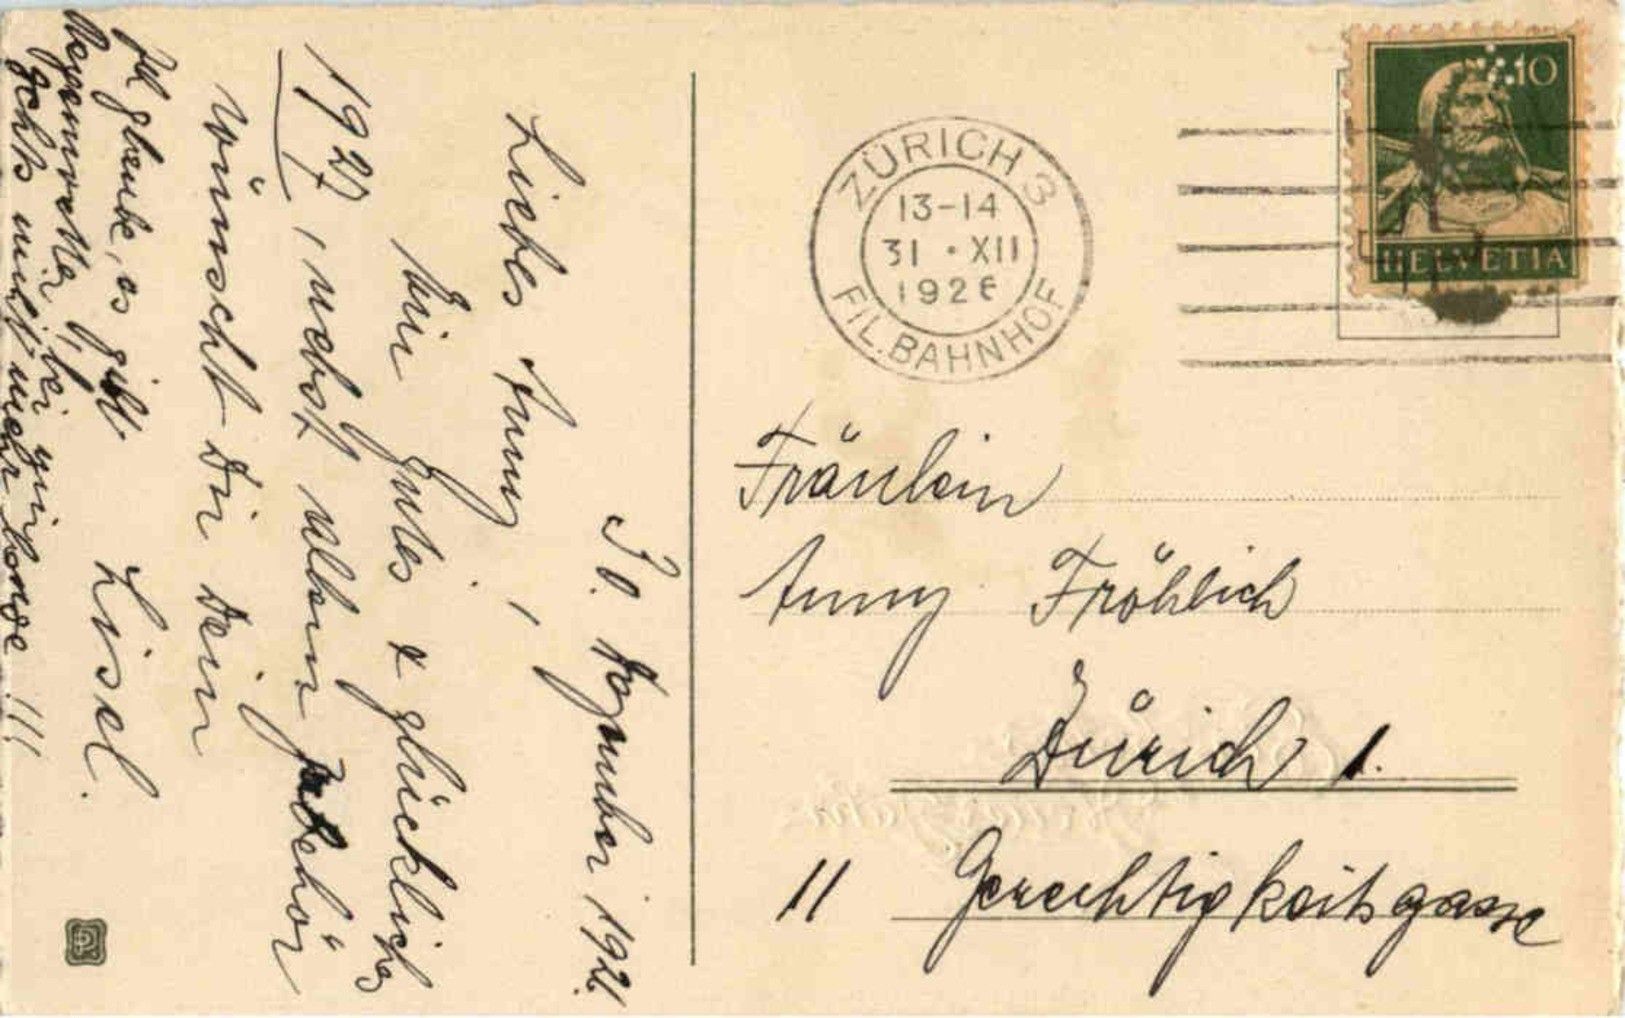 30. Dezember 192
Liebes Anny,
Ein gutes & glückliches
1927, nebst allem Zubehör
wünscht Dir Dein
Lisel.
Ich glaube, es gibt
Regenwetter, bei
gehts nicht mehr lange !!!
ZÜRICH 3
13-14
31 · XII
1926
FIL. BAHNHOF
10
HELVETIA
Fräulein
Anny Fröhlich
Zürich 1.
11 Gerechtigkeitsgasse